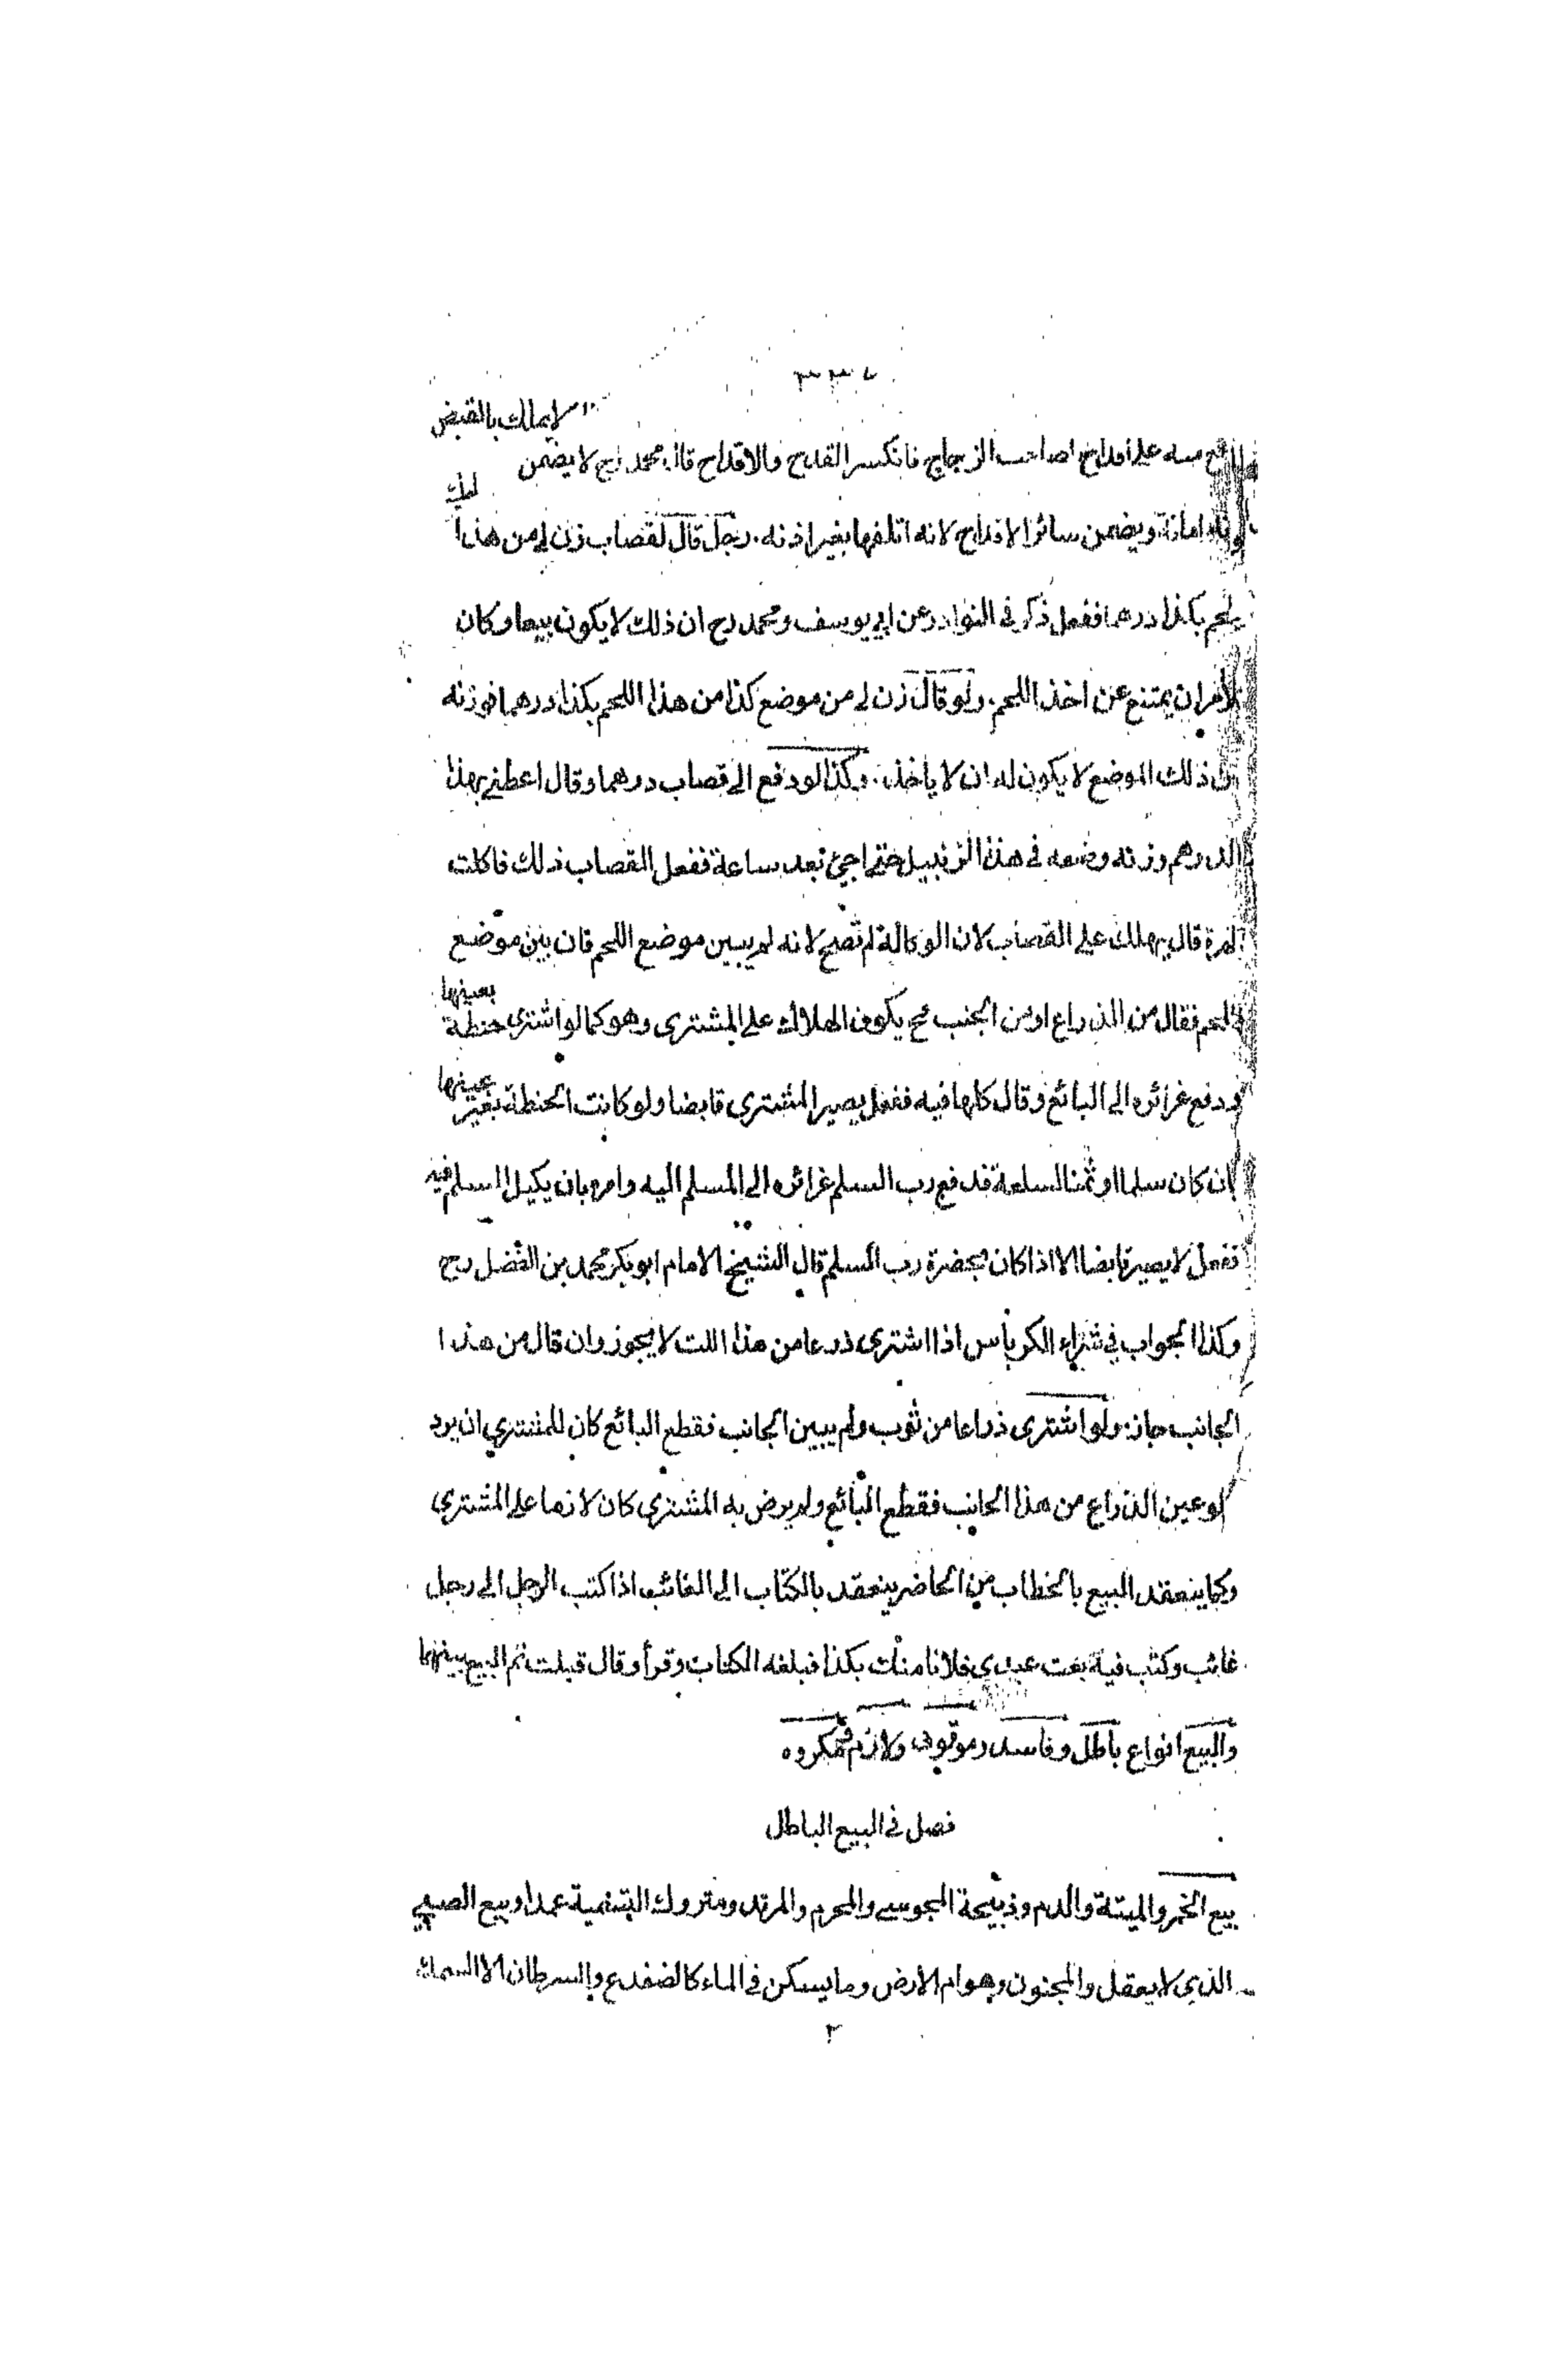 ٣٣٧
لا يملك بالقبض
منه على اقداح لصاحب الزجاج فانكسر القدح والاقداح قال محمد رح لا يضمن
امانة ويضمن سائر الاقداح لانه اتلفها بغير اذنه. رجل قال لقصاب زن لي من هذا
بكذا درهما ففعل ذكر في النوادر عن ابي يوسف ومحمد رح ان ذلك لا يكون بيعا وكان
ان يمتنع عن اخذ اللحم. ولو قال زن لي من موضع كذا من هذا اللحم بكذا درهما فوزنه
ذلك الموضع لا يكون له ان لا ياخذ. وكذا لو دفع الى قصاب درهما وقال اعطني بهذا
الدرهم وزنه وضعه في هذا الزنبيل حتى اجئ بعد ساعة ففعل القصاب ذلك فاكلت
قال يهلك على القصاب لان الوكالة لم تصح لانه لم يبين موضع اللحم فان بين موضع
اللحم فقال من الذراع او من الجنب ح يكون الهلاك على المشتري وهو كما لو اشترى حنطة بعينها
ودفع غرائره الى البائع وقال كلها فيه ففعل يصير المشتري قابضا ولو كانت الحنطة بغير عينها
بان كان سلما او ثمنا لسلعة فدفع رب السلم غرائره الى المسلم اليه وامره بان يكيل المسلم فيه
ففعل لا يصير قابضا الا اذا كان بحضرة رب السلم قال الشيخ الامام ابو بكر محمد بن الفضل رح
وكذا الجواب في شراء الكرباس اذا اشترى ذرعا من هذا لا يجوز وان قال من هذا
الجانب جاز. ولو اشترى ذراعا من ثوب ولم يبين الجانب فقطع البائع كان للمشتري ان يرد
لو عين الذراع من هذا الجانب فقطع البائع ولم يرض به المشتري كان لازما على المشتري
وكما ينعقد البيع بالخطاب من الحاضر ينعقد بالكتاب الى الغائب اذا كتب الرجل الى رجل
غائب وكتب فيه بعت عبدي فلانا منك بكذا فبلغه الكتاب وقرأ وقال قبلت تم البيع بينهما
والبيع انواع باطل وفاسد وموقوف ولازم ومكروه
فصل في البيع الباطل
بيع الخمر والميتة والدم وذبيحة المجوسي والمحرم والمرتد ومتروك التسمية عمدا وبيع الصبي
الذي لا يعقل والمجنون وهوام الارض وما يسكن في الماء كالضفدع والسرطان الا السمك
٢